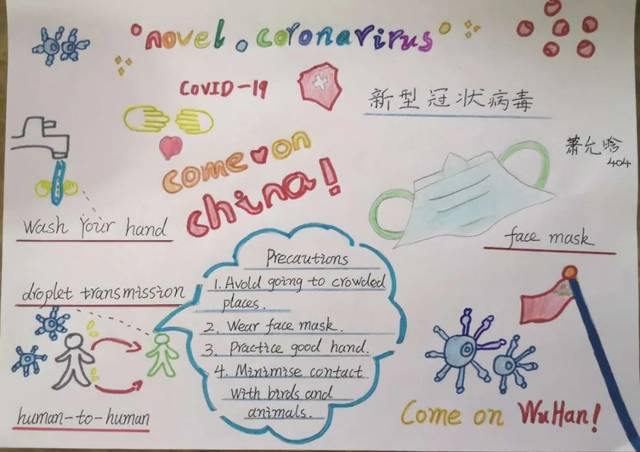 novel coronavirus
COVID-19
新型冠状病毒
come on
china!
萧允晗
404
Wash Your hand
face mask
droplet transmission
human-to-human
Precautions
1. Avold going to crowded
places.
2. Wear face mask.
3. Practice good hand.
4. Minimise contact
with birds and
animals.
Come on WuHan!